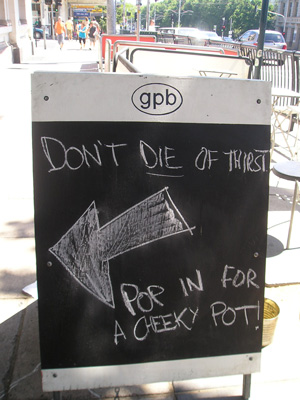 gpb
DON'T DIE OF THIRST
POP IN FOR
A CHEEKY POT!